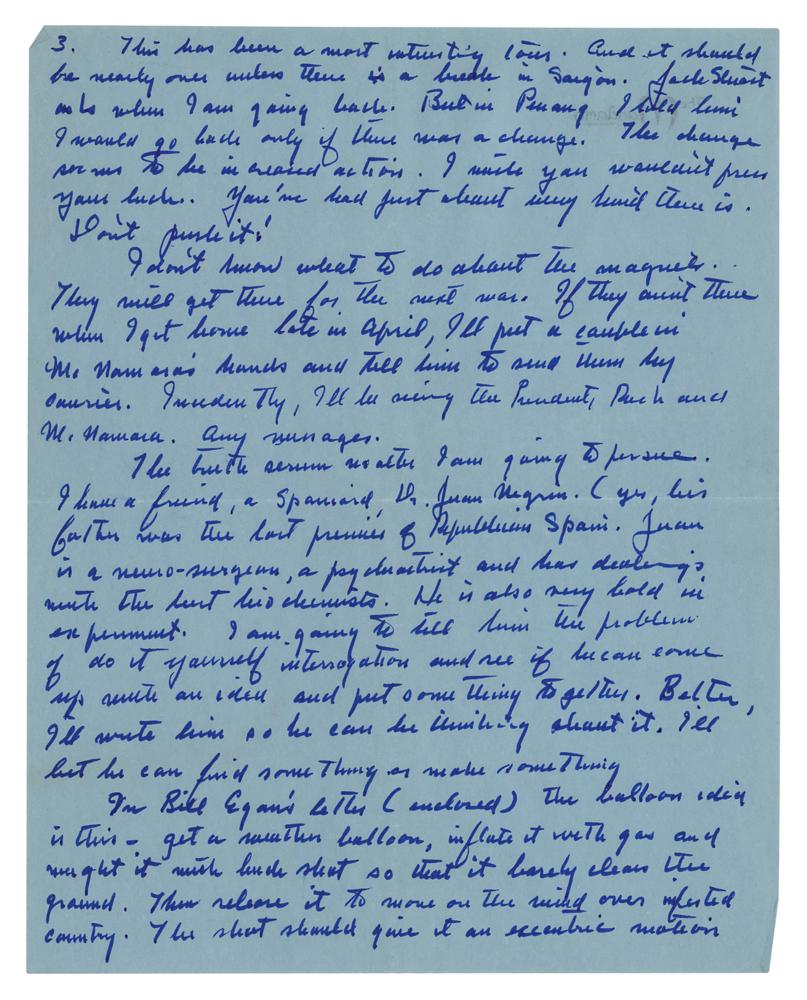 3. This has been a most interesting tour. And it should
be nearly over unless there is a break in Saigon. Jack Stuart
asks when I am going back. But in Penang I told him
I would go back only if there was a change. The change
seems to be increased action. I wish you wouldn't press
your luck. You've had just about every kind there is.
Don't push it!
I don't know what to do about the magnets.
They will get there for the next war. If they ain't there
when I get home late in April, I'll put a couple in
McNamara's hands and tell him to send them by
courier. Incidently, I'll be seeing the President, Rusk and
McNamara. Any messages.
The truth serum matter I am going to persue.
I have a friend, a Spaniard, Dr. Juan Negrin. (yes, his
father was the last premier of Republican Spain. Juan
is a neuro-surgeon, a psychiatrist and has dealings
with the best biochemists. He is also very bold in
experiment. I am going to tell him the problem
of do it yourself interrogation and see if he can come
up with an idea and put something together. Better,
I'll write him so he can be thinking about it. I'll
bet he can find something or make something
In Bill Egan's letter (enclosed) the balloon idea
is this - get a weather balloon, inflate it with gas and
weight it with buck shot so that it barely clears the
ground. Then release it to move on the wind over infested
country. The shot should give it an eccentric motion